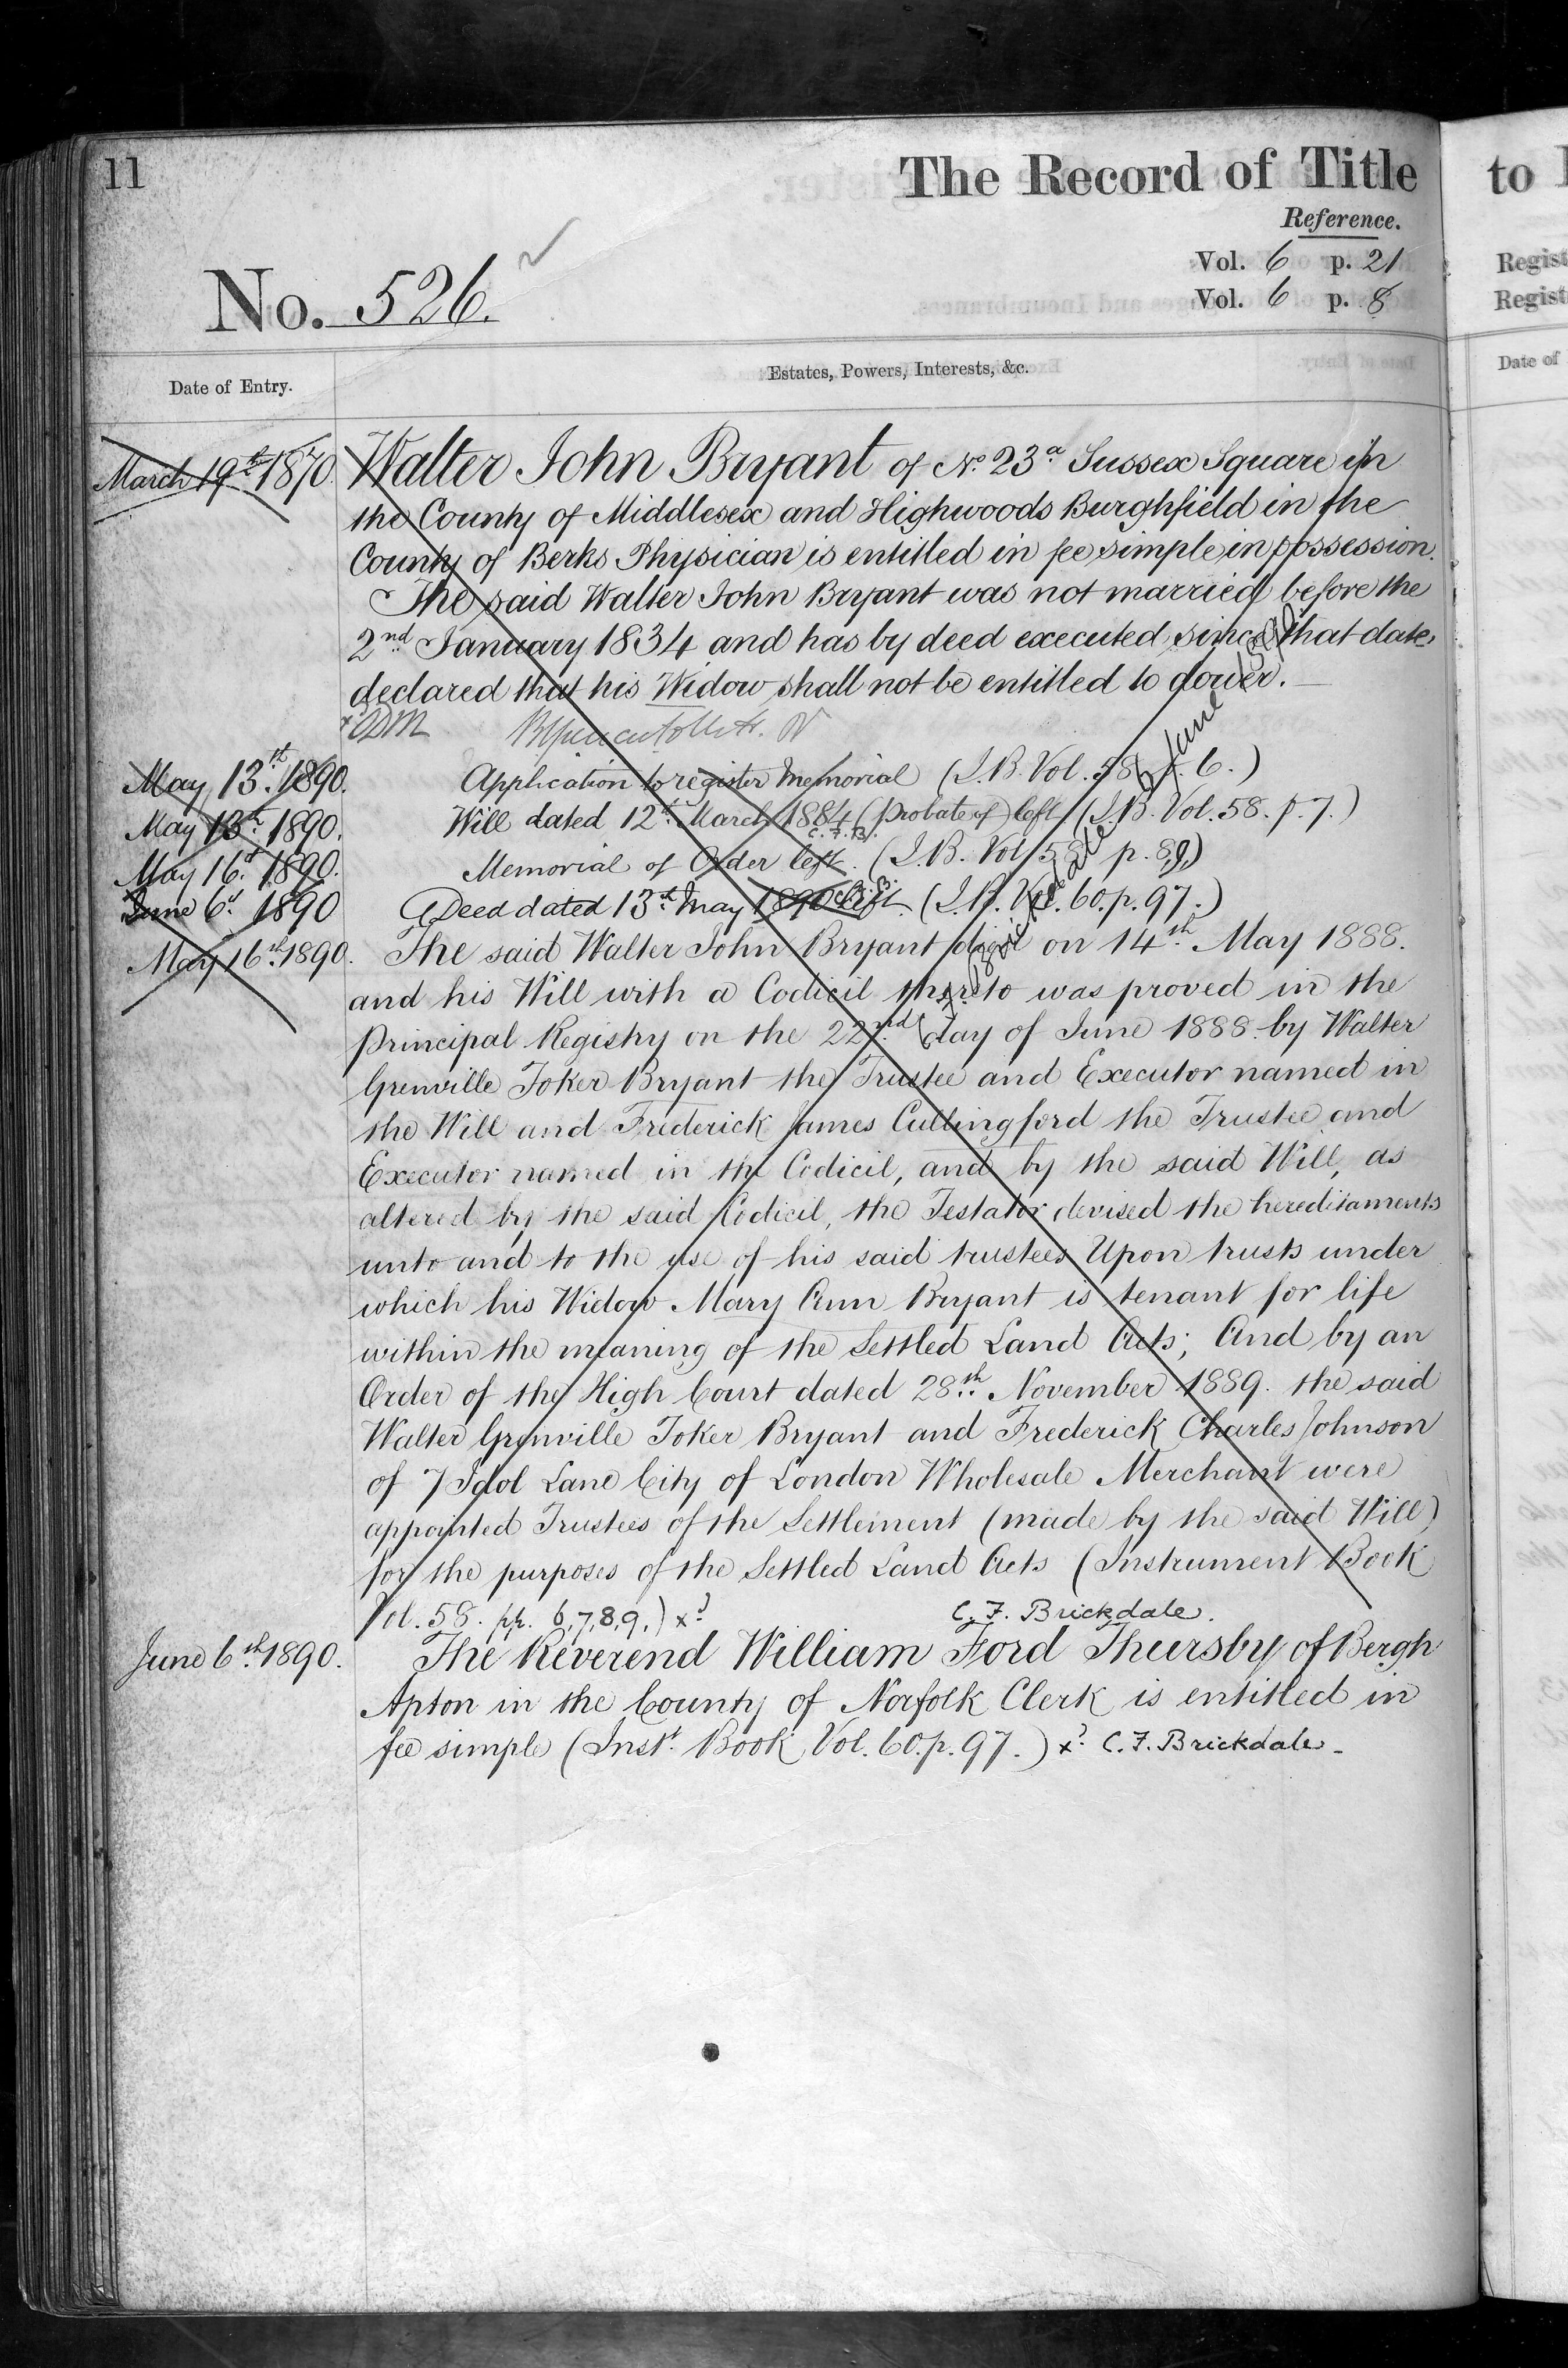 11
The Record of Title
to
Reference.
Vol. 6 p. 21
Vol. 6 p. 8
Regist
Regist
No. 526.
Date of Entry.
Estates, Powers, Interests, &c.
Date of
March 19th 1870. Walter John Bryant of No. 23a Sussex Square in
the County of Middlesex and Highwoods Burghfield in the
County of Berks Physician is entitled in fee simple in possession.
The said Walter John Bryant was not married before the
2nd January 1834 and has by deed executed since that date
declared that his Widow shall not be entitled to dower.
May 13th 1890. Application to register Memorial (I.B. Vol. 58 p. 6.)
May 13th 1890. Will dated 12th March 1884 (Probate of) left (I.B. Vol. 58. p. 7.)
C. F. B.
May 16th 1890. Memorial of Order left. (I.B. Vol 58 p. 8,9,)
June 6th 1890 Deed dated 13th May 1890 left. (I.B. Vol. 60. p. 97.)
May 16th 1890. The said Walter John Bryant died on 14th May 1888.
and his Will with a Codicil thereto was proved in the
Principal Registry on the 22nd day of June 1888 by Walter
Grenville Toker Bryant the Trustee and Executor named in
the Will and Frederick James Cullingford the Trustee and
Executor named in the Codicil, and by the said Will, as
altered by the said Codicil, the Testator devised the hereditaments
unto and to the use of his said trustees Upon trusts under
which his Widow Mary Ann Bryant is tenant for life
within the meaning of the Settled Land Acts; And by an
Order of the High Court dated 28th November 1889. the said
Walter Grenville Toker Bryant and Frederick Charles Johnson
of 7 Idol Lane City of London Wholesale Merchant were
appointed Trustees of the Settlement (made by the said Will)
for the purposes of the Settled Land Acts (Instrument Book
Vol. 58. pp. 6,7,8,9.) C. F. Brickdale.
June 6th 1890. The Reverend William Ford Thursby of Bergh
Apton in the County of Norfolk Clerk is entitled in
fee simple (Inst. Book Vol. 60. p. 97.) C. F. Brickdale